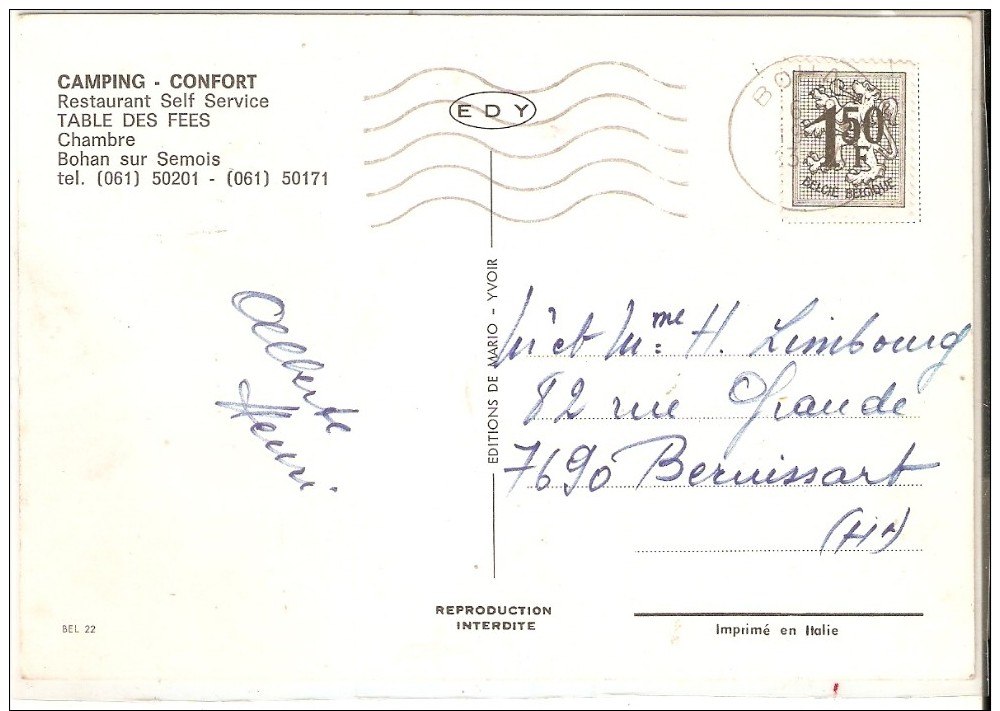 CAMPING - CONFORT
Restaurant Self Service
TABLE DES FEES
Chambre
Bohan sur Semois
tel. (061) 50201 - (061) 50171
EDY
BOHA
1,50 F
BELGIE BELGIQUE
EDITIONS DE MARIO - YVOIR
Alberte
Henri
Mr et Mme H. Limbourg
82 rue Grande
7690 Bernissart
(Ht)
REPRODUCTION
INTERDITE
BEL 22
Imprimé en Italie